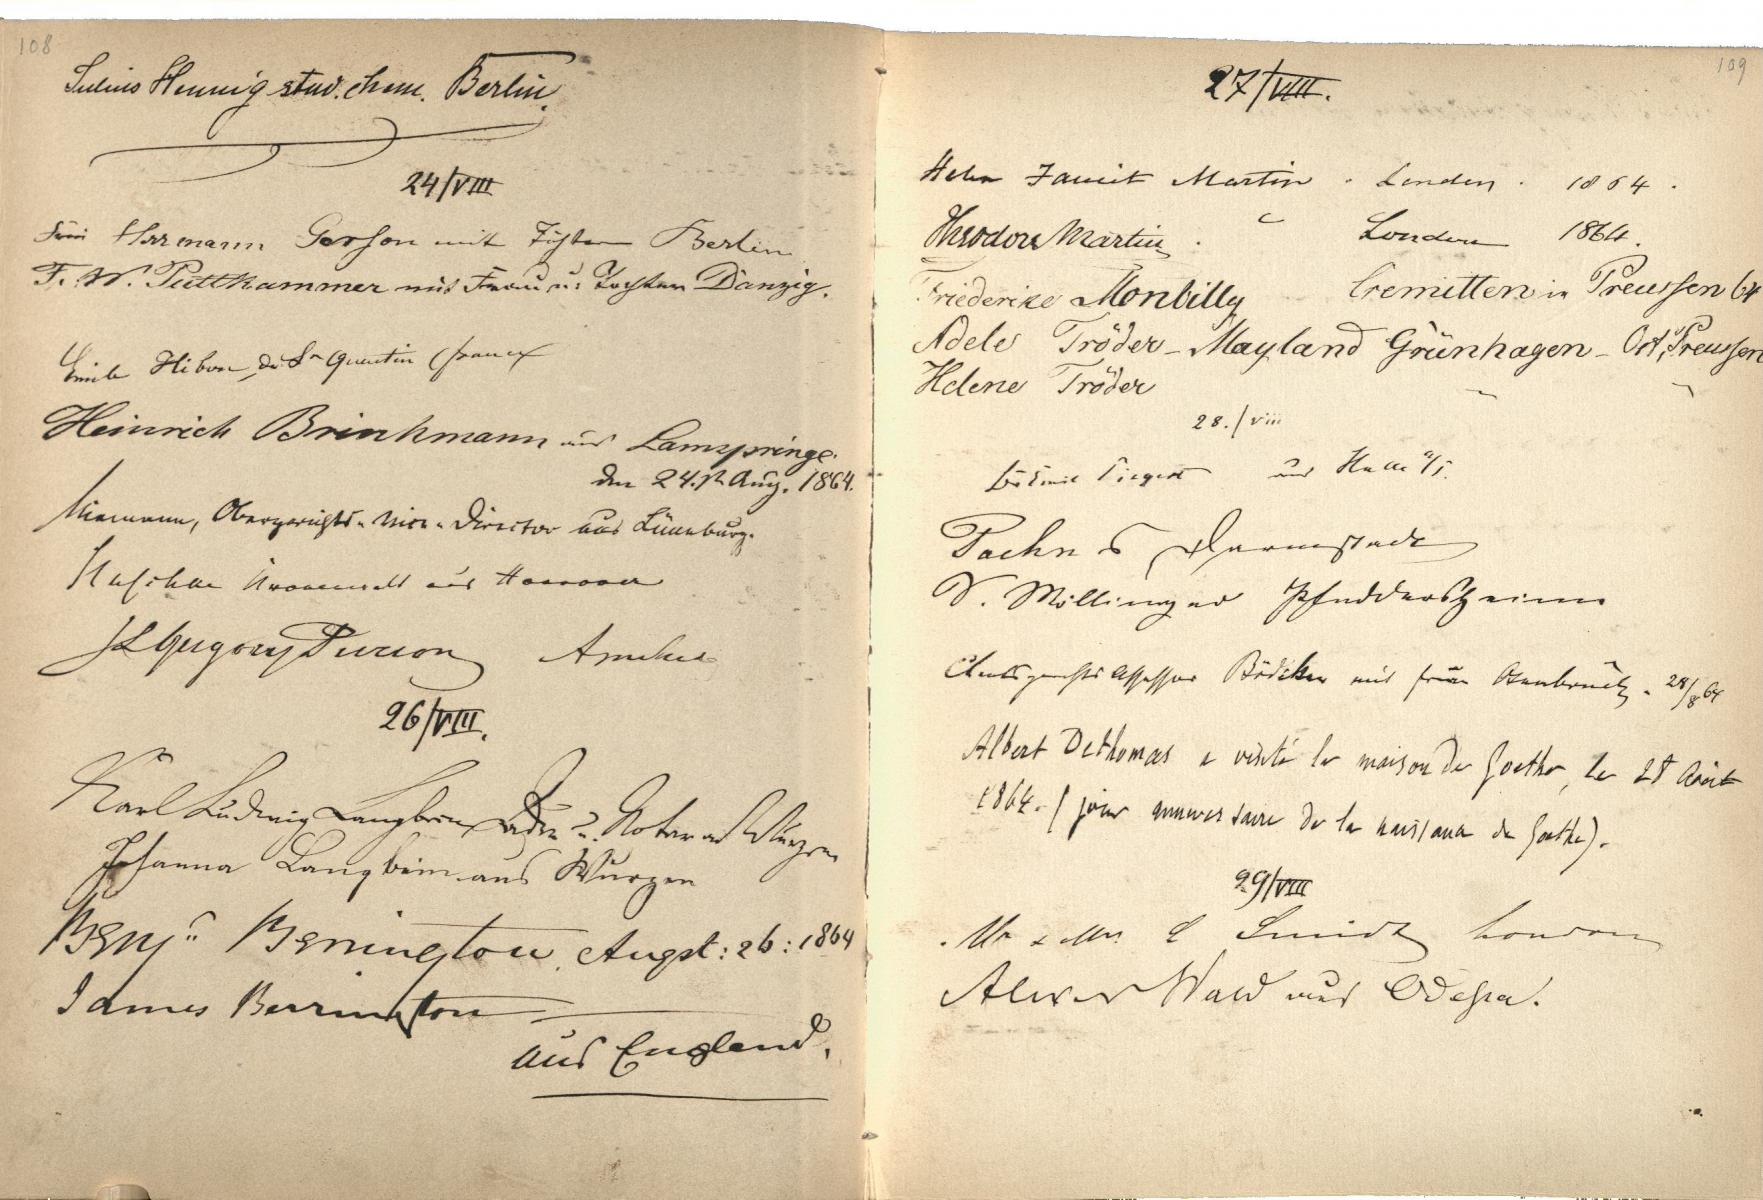 108
Julius Hennig stud. chem. Berlin.
24/VIII
Frau Herrmann Gerson mit Tochter Berlin
F. W. Puttkammer mit Frau u. Tochter Danzig.
Emile Hibon, de St Quentin (france)
Heinrich Brinkmann aus Lamspringe.
den 24. Aug. 1864.
Niemann, Obergerichts-Vice-Director aus Lüneburg.
aus Hannover
Gregory
26/VIII.
Karl Ludwig Langbein, Adv. u. Notar aus Wurzen
Johanna Langbein aus Wurzen
Benj.n Benington Augst: 26: 1864
James Berrington
aus England.
109
27/VIII.
Martin . London . 1864 .
Theodore Martin . " London 1864.
Friederike Monbilly Cremitten in Preussen 64
Adele Tröder - Mayland Grünhagen - Ost, Preussen
Helene Tröder " "
28./VIII
aus Halle a/S.
Darmstadt
V. Möllinger Pfeddersheim
Amtsgerichts Assessor Bödicker mit Frau Osnabrück. 28/8 64
Albert Dethomas a visité la maison de Goethe, le 28 Août
1864. (jour anniversaire de la naissance de Goethe).
29/VIII
Mr & Mrs E Smidt London
Wald aus Odessa.